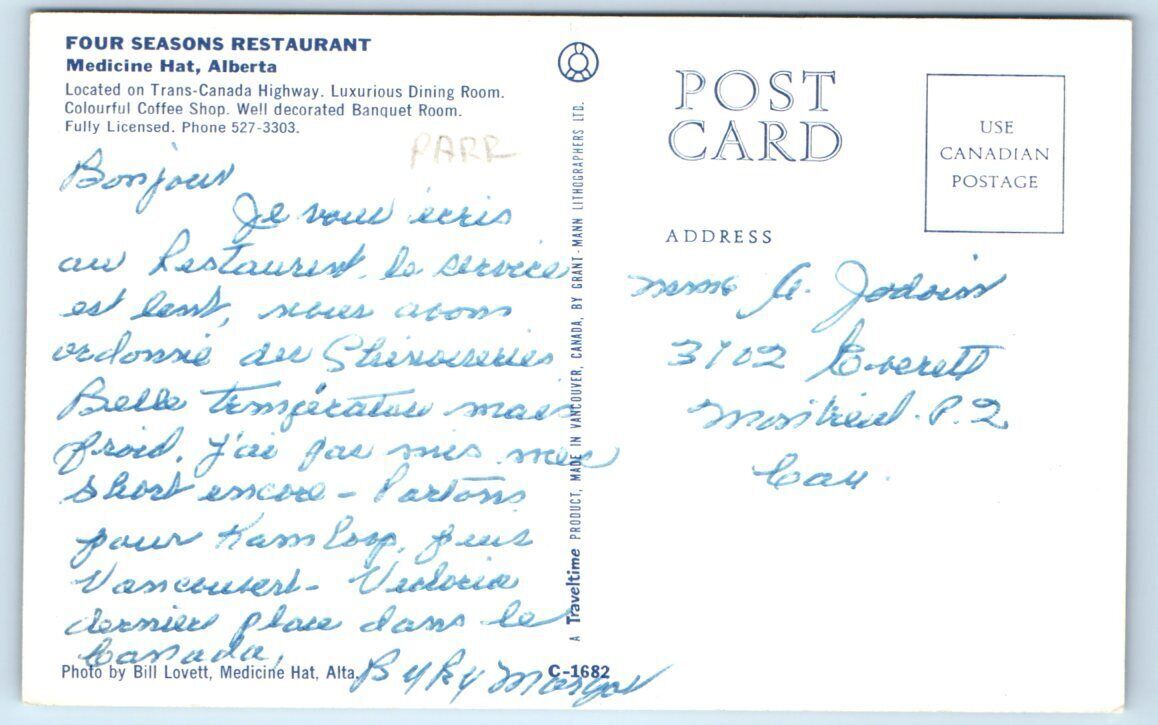 FOUR SEASONS RESTAURANT
Medicine Hat, Alberta
Located on Trans-Canada Highway. Luxurious Dining Room.
Colourful Coffee Shop. Well decorated Banquet Room.
Fully Licensed. Phone 527-3303.
PARR
Bonjour
Je vous écris
au Restaurent, le service
est lent, nous avons
ordonné du Chinoiseries
Belle température mais
froid, j'ai pas mis mes
short encore - Partons
pour Kamloop, puis
Vancouvert - Victoria
dernier place dans le
Canada,
By By Margot
Photo by Bill Lovett, Medicine Hat, Alta.
C-1682
A Traveltime PRODUCT, MADE IN VANCOUVER, CANADA, BY GRANT-MANN LITHOGRAPHERS LTD.
POST
CARD
USE
CANADIAN
POSTAGE
ADDRESS
Mme A. Jodoin
3102 Everett
Montréal. P.Q
Can.